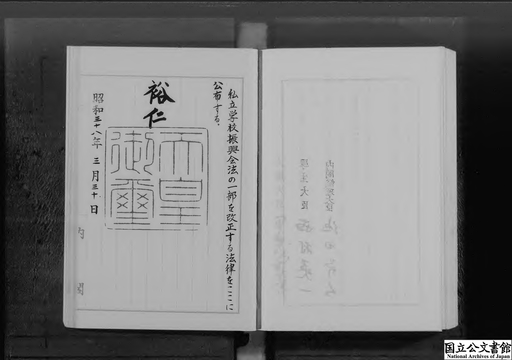 私立学校振興会法の一部を改正する法律をここに
公布する。
裕仁
天皇
御璽
昭和三十八年三月三十日
内閣
国立公文書館
National Archives of Japan